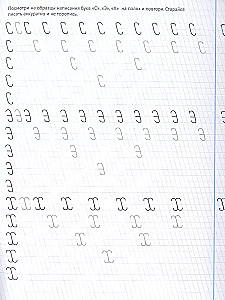 Посмотри на образцы написания букв «С», «Э», «Х» на полях и повтори. Старайся
писать аккуратно и не торопясь.
С С С С С С С С С С С
С С С С С С С С С
С С С
С С
С
Э Э Э Э Э Э Э Э Э Э Э
Э Э Э Э Э Э Э Э Э
Э Э Э
Э Э
Э
Х Х Х Х Х Х Х Х
Х Х Х Х Х Х
Х Х Х
Х
Х